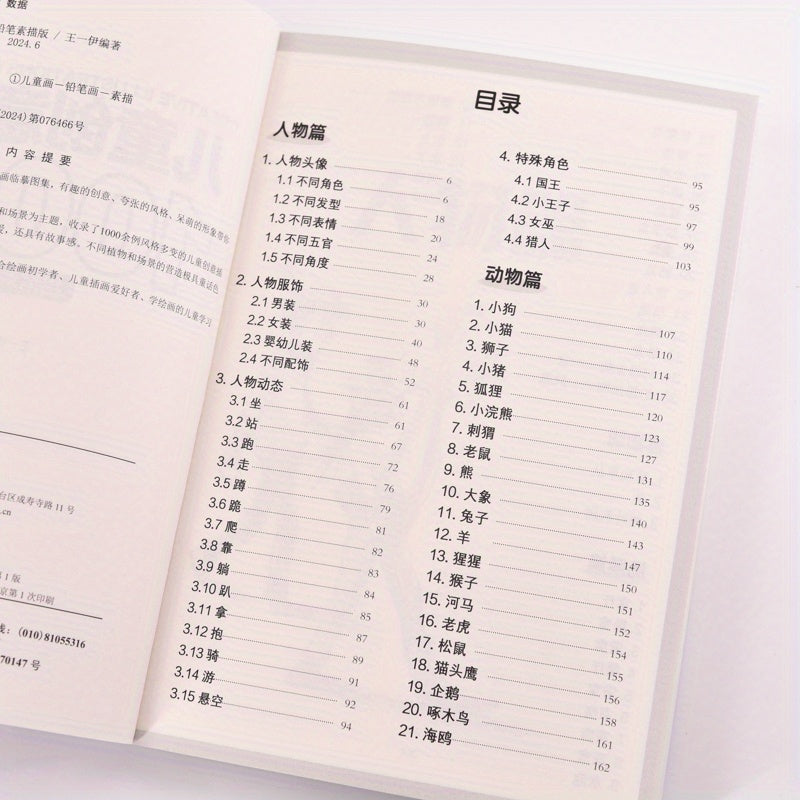 数据
铅笔素描版 / 王一伊编著
2024.6
①儿童画－铅笔画－素描
(2024)第076466号
内 容 提 要
画临摹图集，有趣的创意、夸张的风格、呆萌的形象带你
和场景为主题，收录了1000余例风格多变的儿童创意插
，还具有故事感。不同植物和场景的营造极具童话色
合绘画初学者、儿童插画爱好者、学绘画的儿童学习
台区成寿寺路 11 号
.cn
第 1 版
京第 1 次印刷
线：(010)81055316
70147 号
目录
人物篇
1. 人物头像 6
1.1 不同角色 6
1.2 不同发型 18
1.3 不同表情 20
1.4 不同五官 24
1.5 不同角度 28
2. 人物服饰 30
2.1 男装 30
2.2 女装 40
2.3 婴幼儿装 48
2.4 不同配饰 52
3. 人物动态 61
3.1 坐 61
3.2 站 67
3.3 跑 72
3.4 走 76
3.5 蹲 79
3.6 跪 81
3.7 爬 82
3.8 靠 83
3.9 躺 84
3.10 趴 85
3.11 拿 87
3.12 抱 89
3.13 骑 91
3.14 游 92
3.15 悬空 94
4. 特殊角色 95
4.1 国王 95
4.2 小王子 97
4.3 女巫 99
4.4 猎人 103
动物篇
1. 小狗 107
2. 小猫 110
3. 狮子 114
4. 小猪 117
5. 狐狸 120
6. 小浣熊 123
7. 刺猬 127
8. 老鼠 131
9. 熊 135
10. 大象 140
11. 兔子 143
12. 羊 147
13. 猩猩 150
14. 猴子 151
15. 河马 152
16. 老虎 154
17. 松鼠 155
18. 猫头鹰 156
19. 企鹅 158
20. 啄木鸟 161
21. 海鸥 162